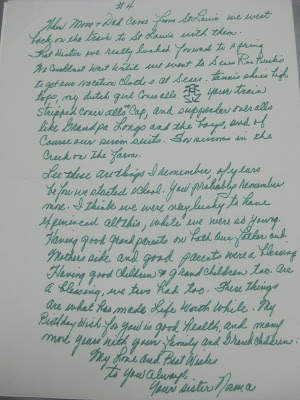 #4
When Mom & Dad came from St Louis we went
back on the train to St Louis with them.
That Winter we really looked forward to spring
We couldnt wait until we went to Sears Roe Buck's
to get our vacation clothes at Sears. tennis shoes high
tops, my dutch girl Coveralls your train
stripped coveralls "Cap, and suspender overalls
like Grandpa Longs and the boys, and of
Course our swim suits. For swims in the
Creek on the farm.
Lee these are things I remember of years
before we started school. You probably remember
more. I think we were very lucky to have
experienced all this, while we were so young.
Having good grand parents on both our father and
Mothers side and good parents were a blessing
Having good Children & Grand Children too. Are
a blessing, we two had too. These things
are what has made Life Worth While. My
Birthday Wish To You is Good Health, and many
more years with your family and Grand Children.
My Love and Best Wishes
to You Always.
Your sister Nama